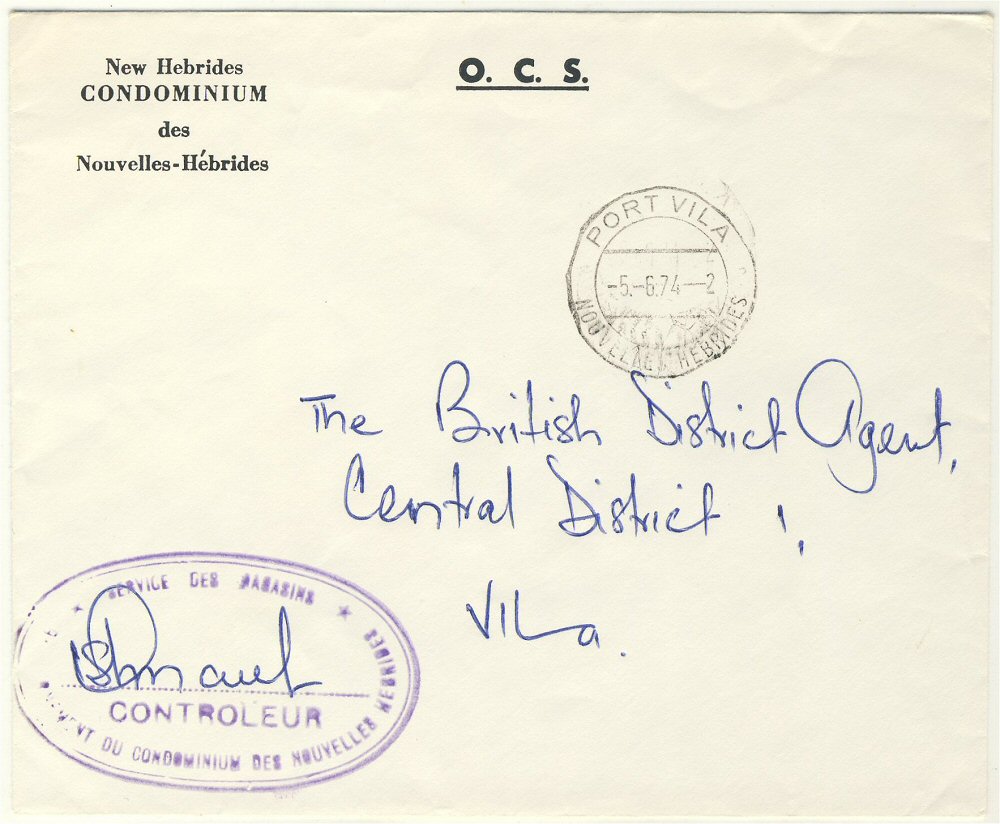 New Hebrides
CONDOMINIUM
des
Nouvelles-Hébrides
O. C. S.
PORT VILA
-5.-6.74--2
NOUVELLES HEBRIDES
The British District Agent,
Central District 1,
Vila.
SERVICE DES MAGASINS
CONTROLEUR
DU CONDOMINIUM DES NOUVELLES HEBRIDES